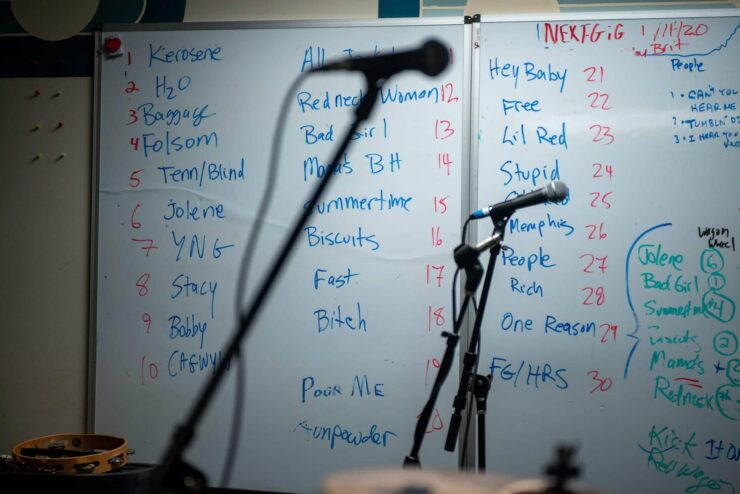 1 Kerosene
2 H2O
3 Baggage
4 Folsom
5 Tenn/Blind
6 Jolene
7 YNG
8 Stacy
9 Bobby
10 CAGWYN
All
Redneck Woman 12
Bad Girl 13
Mamas BH 14
Summertime 15
Biscuits 16
Fast 17
Bitch 18
19
Poor Me
Gunpowder
NEXT GIG 1/11/20
Brit
Hey Baby 21
Free 22
Lil Red 23
Stupid 24
25
Memphis 26
People 27
Rich 28
One Reason 29
FG/HRS 30
People
1 • CAN'T YOU
HEAR ME
2 • TUMBLN' DI
3 • I HEAR YOU
Wagon
Wheel
Jolene 6
Bad Girl 1
Summertime 4
2
Mamas
Redneck
Kick It On
Red Wagon